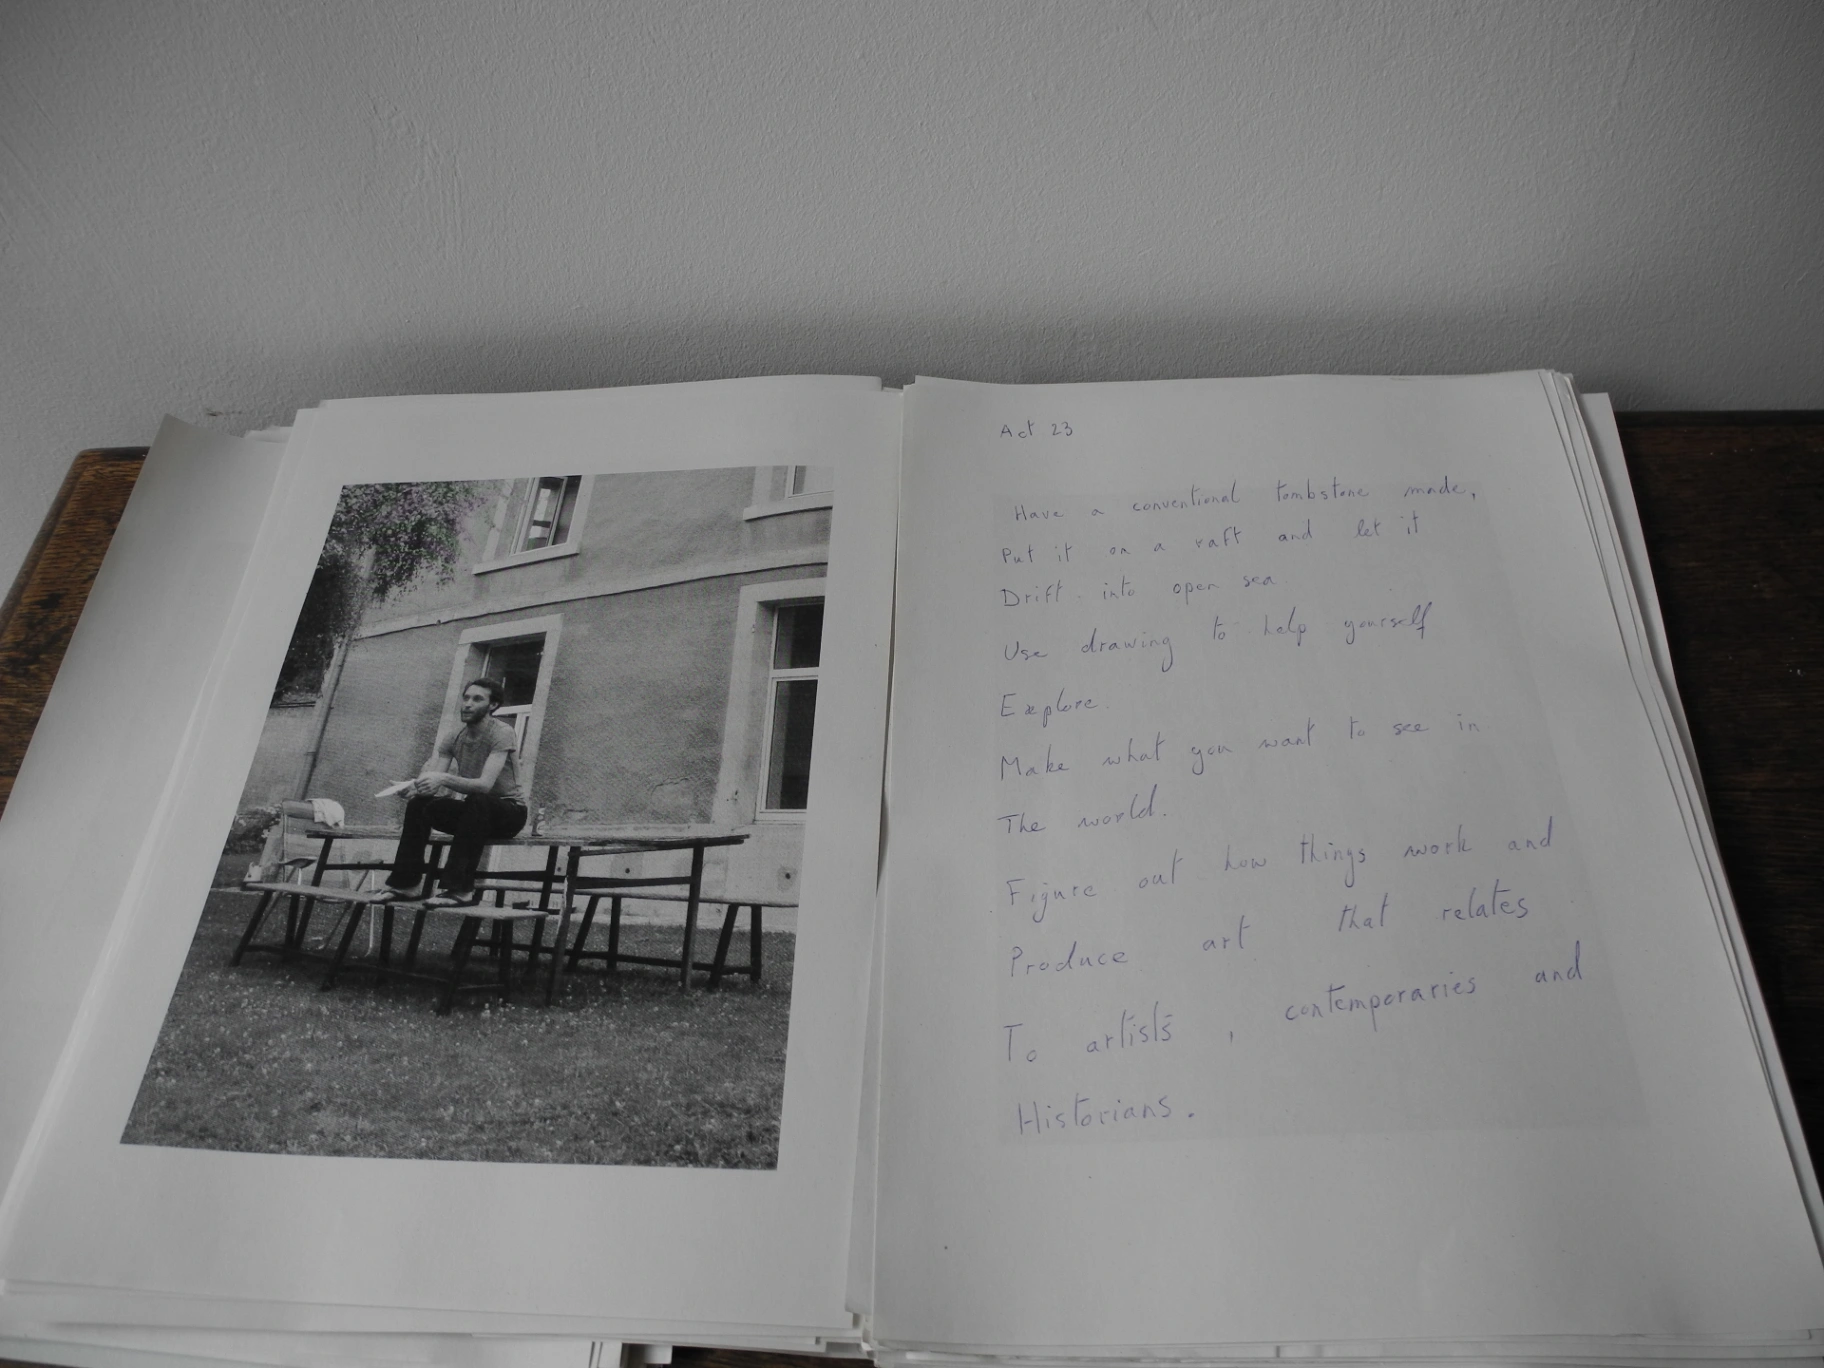 Act 23
Have a conventional tombstone made,
Put it on a raft and let it
Drift into open sea.
Use drawing to help yourself
Explore.
Make what you want to see in
The world.
Figure out how things work and
Produce art that relates
To artists, contemporaries and
Historians.